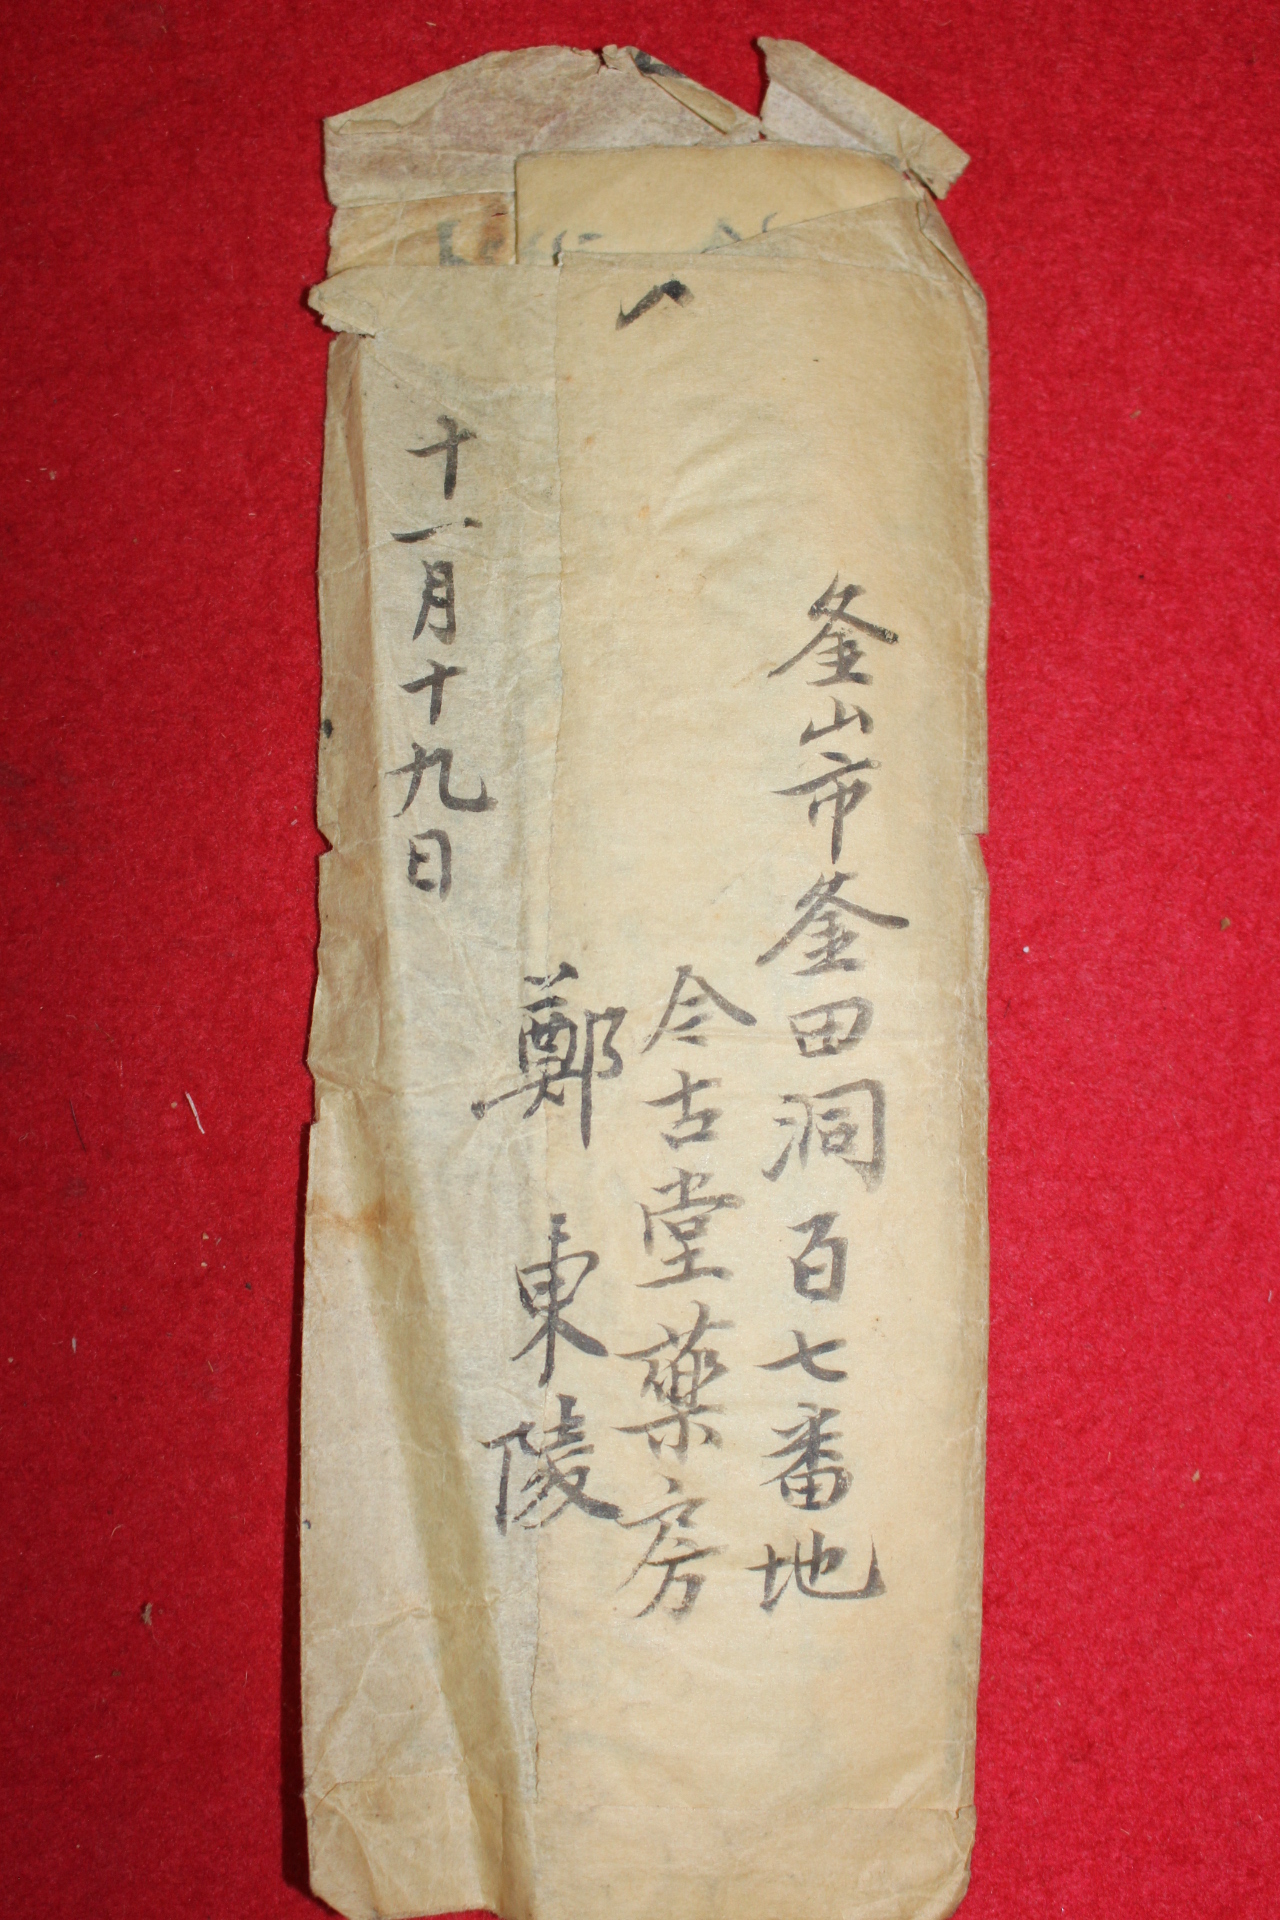 釜山市釜田洞百七番地
今古堂藥房
鄭東陵
十一月十九日